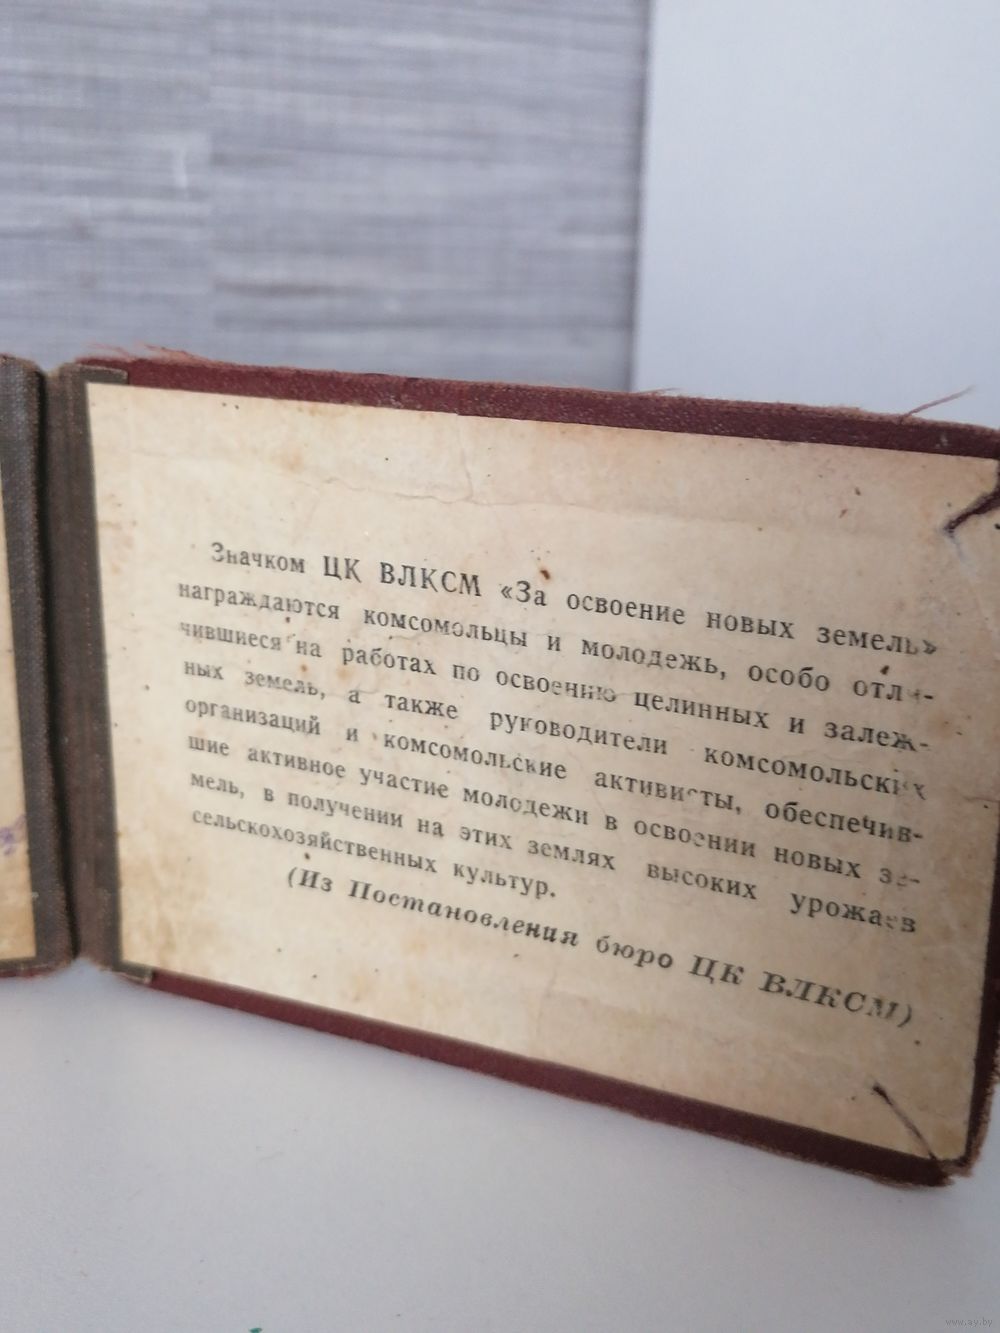 Значком ЦК ВЛКСМ «За освоение новых земель»
награждаются комсомольцы и молодежь, особо отли-
чившиеся на работах по освоению целинных и залеж-
ных земель, а также руководители комсомольских
организаций и комсомольские активисты, обеспечив-
шие активное участие молодежи в освоении новых зе-
мель, в получении на этих землях высоких урожаев
сельскохозяйственных культур.
(Из Постановления бюро ЦК ВЛКСМ)
www.ay.by